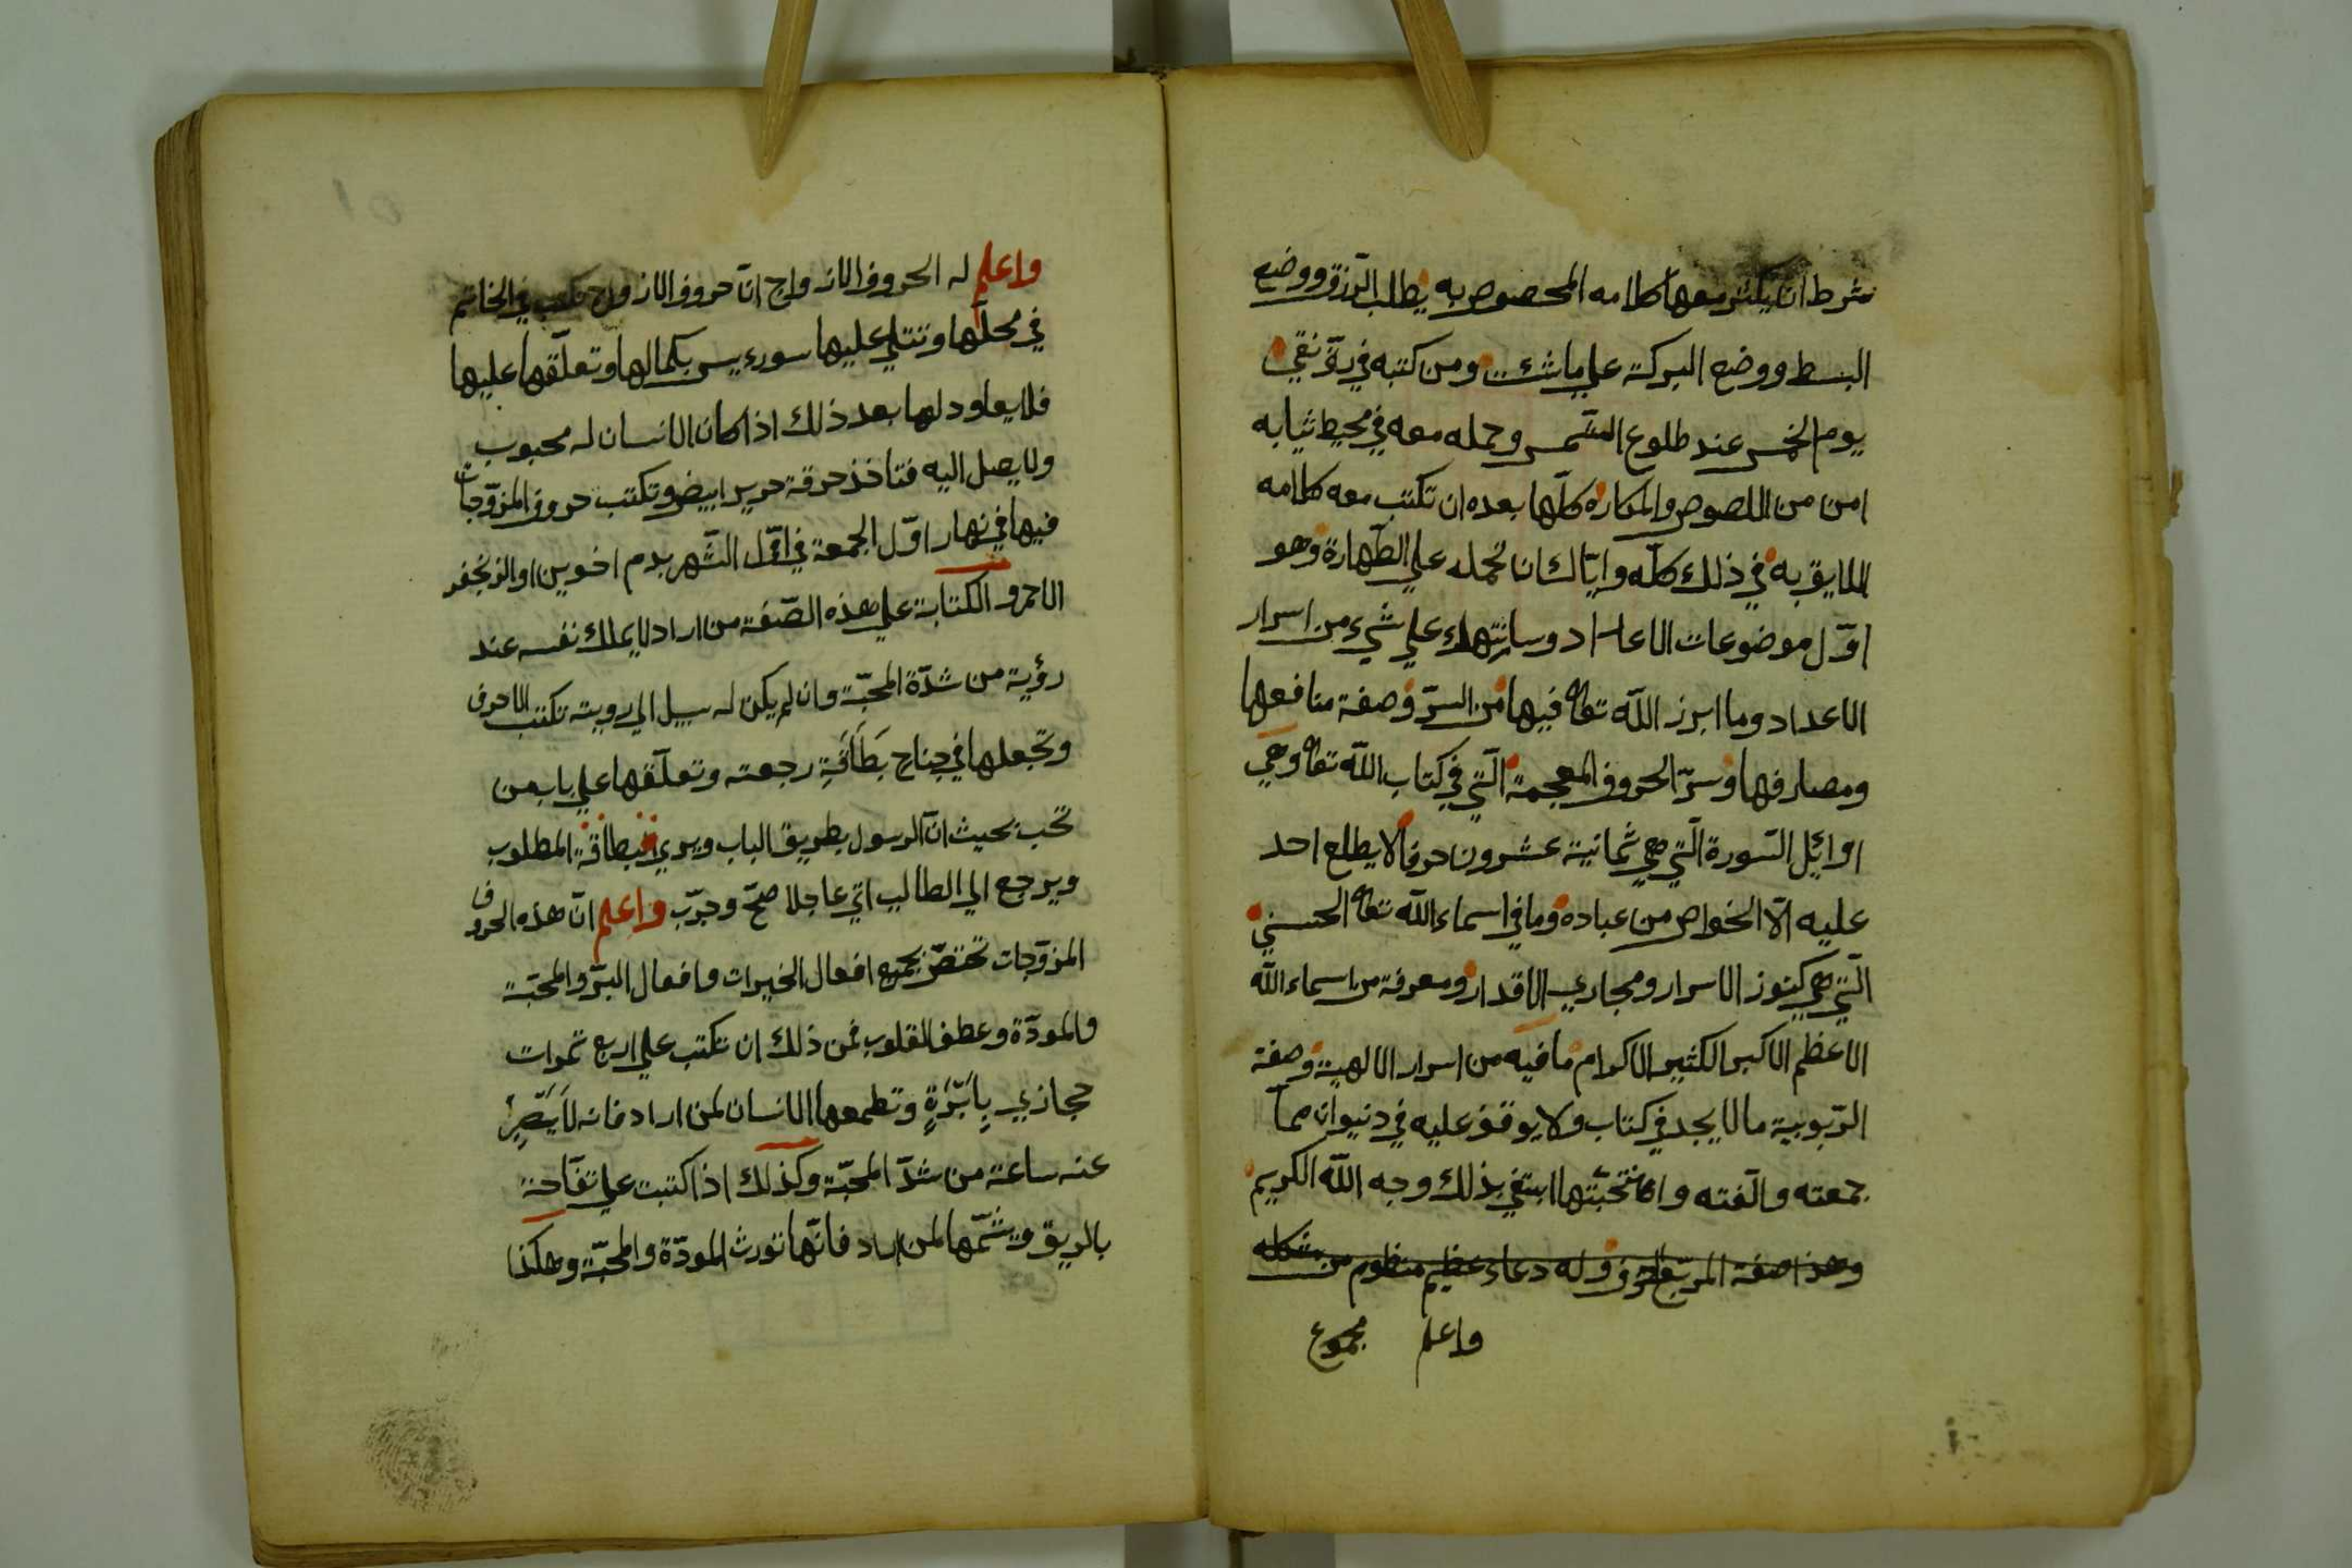 شرط ان يكثر معها كلامه المخصوص به يطلب الرزق ووضع
البسط ووضع البركة علي ما شئت ومن كتبه في رق نقي
يوم الخمس عند طلوع الشمس وحمله معه في محيط ثيابه
امن من اللصوص والمكاره كلّها بعده ان تكتب معه كلامه
اللايق به في ذلك كلّه وايّاك ان تحمله علي الطّهارة وهو
اوّل موضوعات الاعداد وسانتهاء علي شيء من اسرار
الاعداد وما ابرز اللّه تعا فيها من السرّ وصفة منافعها
ومصارفها وسرّ الحروف المعجمة الّتي في كتاب اللّه تعا وهي
اوائل السّورة الّتي هي ثمانية عشرون حرفا لا يطلع احد
عليه الّا الخواص من عباده وما في اسماء اللّه تعا الحسني
الّتي هي كنوز الاسرار ومجاري الاقدار ومعرفة من اسماء اللّه
الاعظم الاكبر الكثير الاكرام ما فيه من اسرار الالهية وصفة
الرّبوبية ما لا يجد في كتاب ولا يوقف عليه في ديوان ممّا
جمعته والّفته وانتخبتها ابتغي بذلك وجه اللّه الكريم
وهذا صفة المربّع الحرفي وله دعاء عظيم منظوم من شكله
واعلم مجموع
01
واعلم له الحروف الازواج انّ حروف الازواج تكتب في الخاتم
في محلّها وتتلي عليها سورة يس بكمالها وتعلّقها عليها
فلا يعاود لها بعد ذلك اذا كان الانسان له محبوب
ولا يصل اليه فتاخذ خرقة حرير ابيض وتكتب حروف المزوّجات
فيها في نهار اوّل الجمعة في اوّل الشّهر بدم اخوين او الزنجفر
الاحمر والكتابة علي هذه الصّفة من اراد لا يملك نفسه عند
رؤية من شدّة المحبّة وان لم يكن له سبيل الي رويته تكتب الاحرف
وتجعلها في جناح بَطَاقَةِ رجعته وتعلّقها علي باب من
تحب بحيث انّ الرسول يطريق الباب ويري بطاقة المطلوب
ويرجع الي الطالب اتي عاجلا صحّ وجرّب واعلم انّ هذه الحروف
المزوّجات تختصّ بجميع افعال الخيرات وافعال البرّ والمحبّة
والمودّة وعطف القلوب فمن ذلك ان تكتب علي اربع تمرات
حجازي بِاَبْرَةٍ وتطعمها الانسان لمن اراد فانه لا يَصْبِرُ
عنه ساعة من شدّ المحبّة وكذلك اذا كتبت علي تفّاحة
بالريق ويشمّها لمن اراد فانّها تورث المودّة والمحبّة وهكذا